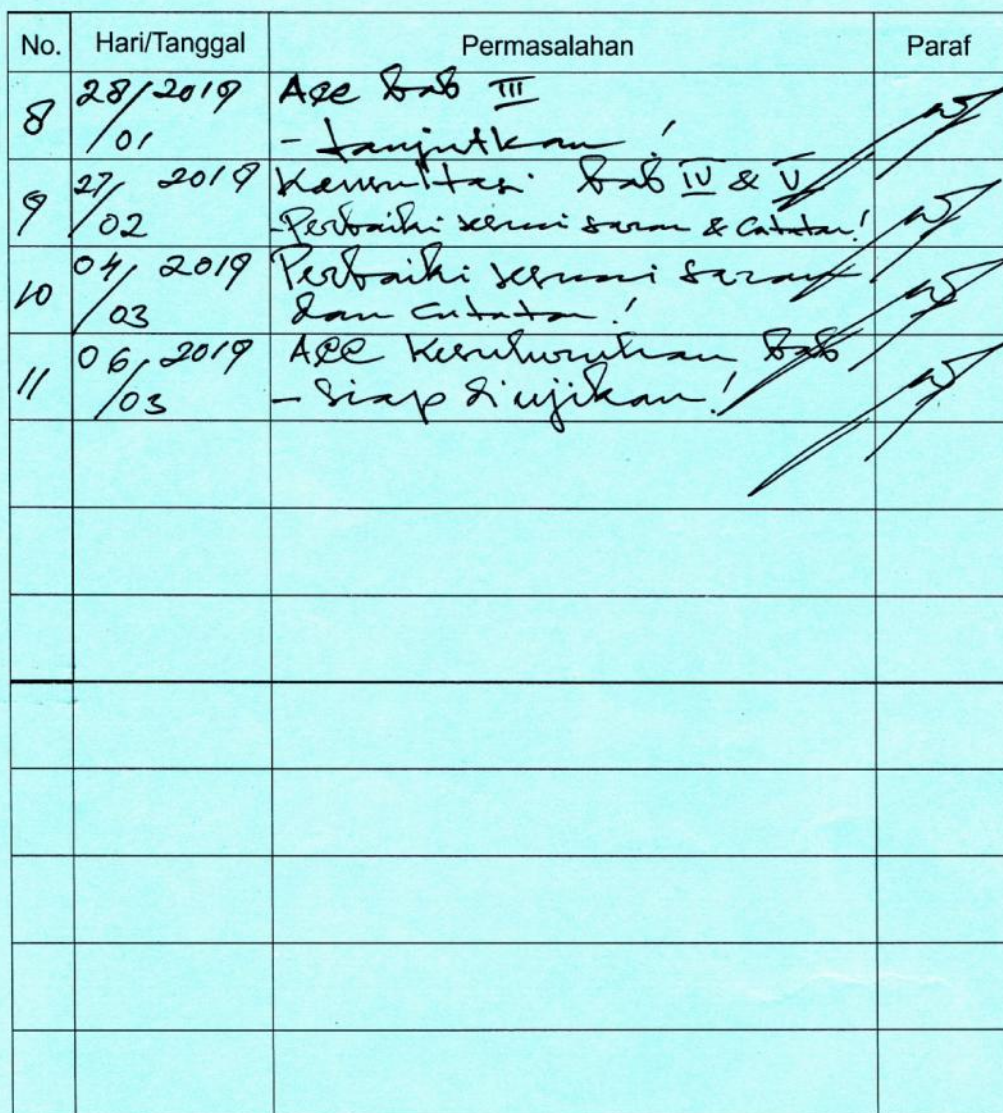 No. Hari/Tanggal Permasalahan Paraf
8 28/01 2019 Acc bab III
- Lanjutkan!
9 27/02 2019 Konsultasi bab IV & V
- Perbaiki sesuai saran & catatan!
10 04/03 2019 Perbaiki sesuai saran
dan catatan!
11 06/03 2019 ACC keseluruhan bab
- Siap diujikan!